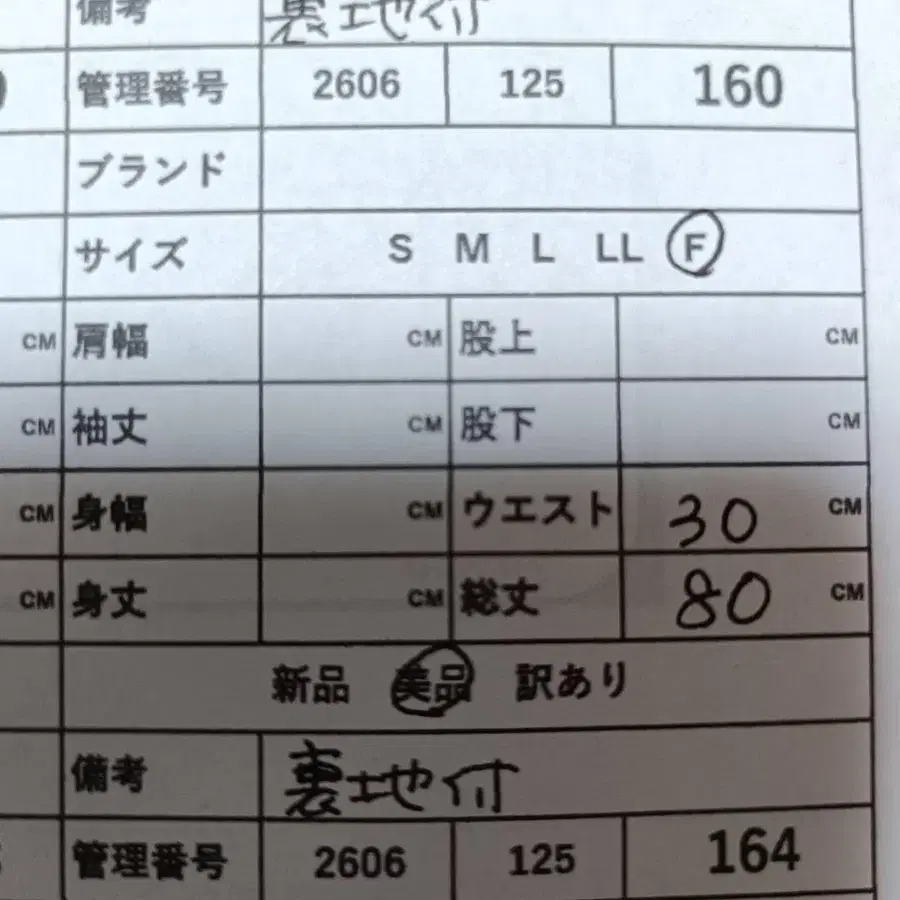 備考 裏地付
管理番号 2606 125 160
ブランド
サイズ S M L LL F
CM 肩幅 CM 股上 CM
CM 袖丈 CM 股下 CM
CM 身幅 CM ウエスト 30 CM
CM 身丈 CM 総丈 80 CM
新品 美品 訳あり
備考 裏地付
管理番号 2606 125 164